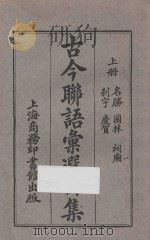 上冊
名勝 園林 祠廟
刹宇 慶賀
古今聯語彙選集
上海商務印書館出版